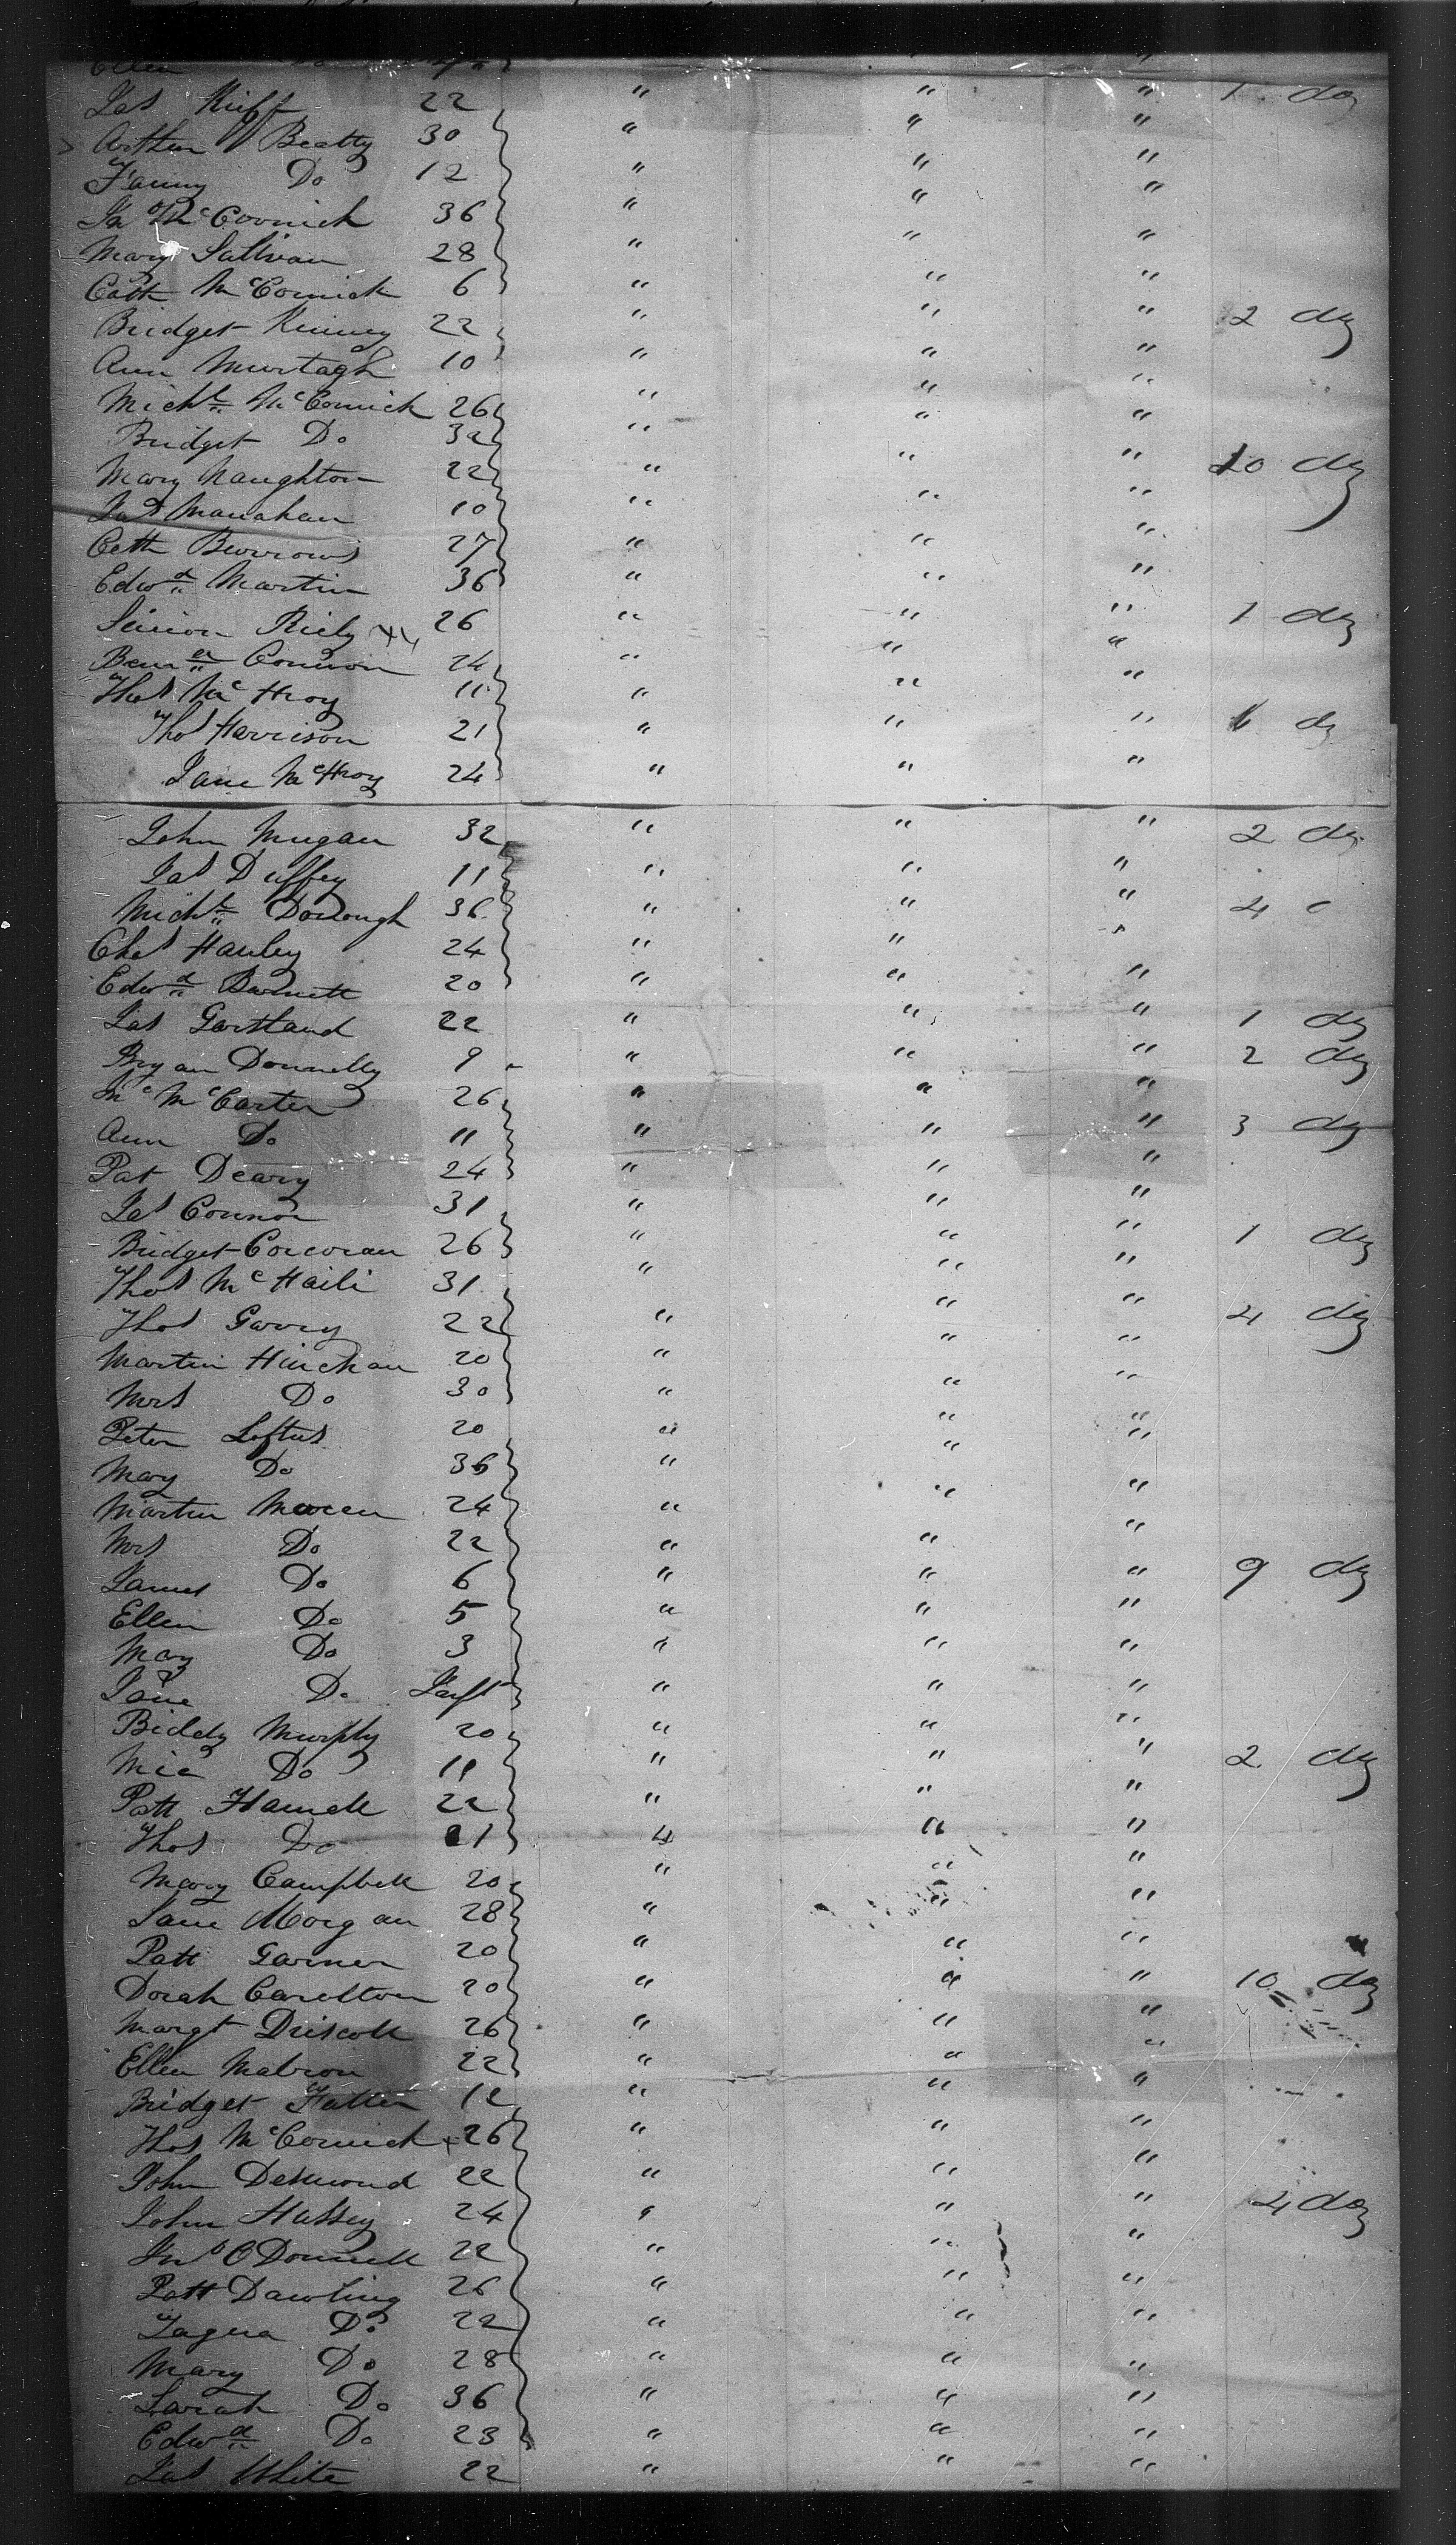 Ellen Do
Jas Kieff 22 " " " 1 do
Arthur Beatty 30 " " "
Fanny Do 12 " " "
Jno McCormick 36 " " "
Mary Sullivan 28 " " "
Cath McCormick 6 " " "
Bridget Kinney 22 " " " 2 do
Ann Murtagh 10 " " "
Michl McCormick 26 " " "
Bridget Do 32 " " "
Mary Naughton 22 " " " 10 do
Jas Manahan 10 " " "
Cath Burrows 27 " " "
Edwd Martin 36 " " "
Simion Riely 26 " " " 1 do
Connor 24 " " "
Thos McHroy 11 " " "
Thos Harrison 21 " " " 6 do
Jane McHroy 24 " " "
John Mugan 32 " " " 2 do
Jas Duffey 11 " " "
Michl Donough 36 " " " 4
Chas Hanley 24 " " "
Edwd Barnett 20 " " "
Jas Gartland 22 " " " 1 do
Bryan Donnelly 9 " " " 2 do
McCarter 26 " " "
Ann Do 11 " " " 3 do
Pat Deary 24 " " "
Jas Connor 31 " " "
Bridget Corcoran 26 " " " 1 do
Thos McHaili 31 " " "
Thos Garry 22 " " " 4 do
Martin Hinchan 20 " " "
Mrs Do 30 " " "
Peter Loftus 20 " " "
Mary Do 36 " " "
Martin 24 " " "
Mrs Do 22 " " "
James Do 6 " " " 9 do
Ellen Do 5 " " "
Mary Do 3 " " "
Jane Do Inft " " "
Biddy Murphy 20 " " "
Mic Do 11 " " " 2 do
Patt Hamell 22 " " "
Thos Do 21 " " "
Mary Campbell 20 " " "
Jane Morgan 28 " " "
Patt Garner 20 " " "
Dorah Carolton 20 " " " 10 do
Margt Driscoll 26 " " "
Ellen 22 " " "
Bridget 12 " " "
Thos McCormick 26 " " "
John Desmond 22 " " "
John Hussey 24 " " " 4 do
Jno O'Donnell 22 " " "
Patt Dawling 26 " " "
Do 22 " " "
Mary Do 28 " " "
Sarah Do 36 " " "
Edwd Do 23 " " "
Jas White 22 " " "